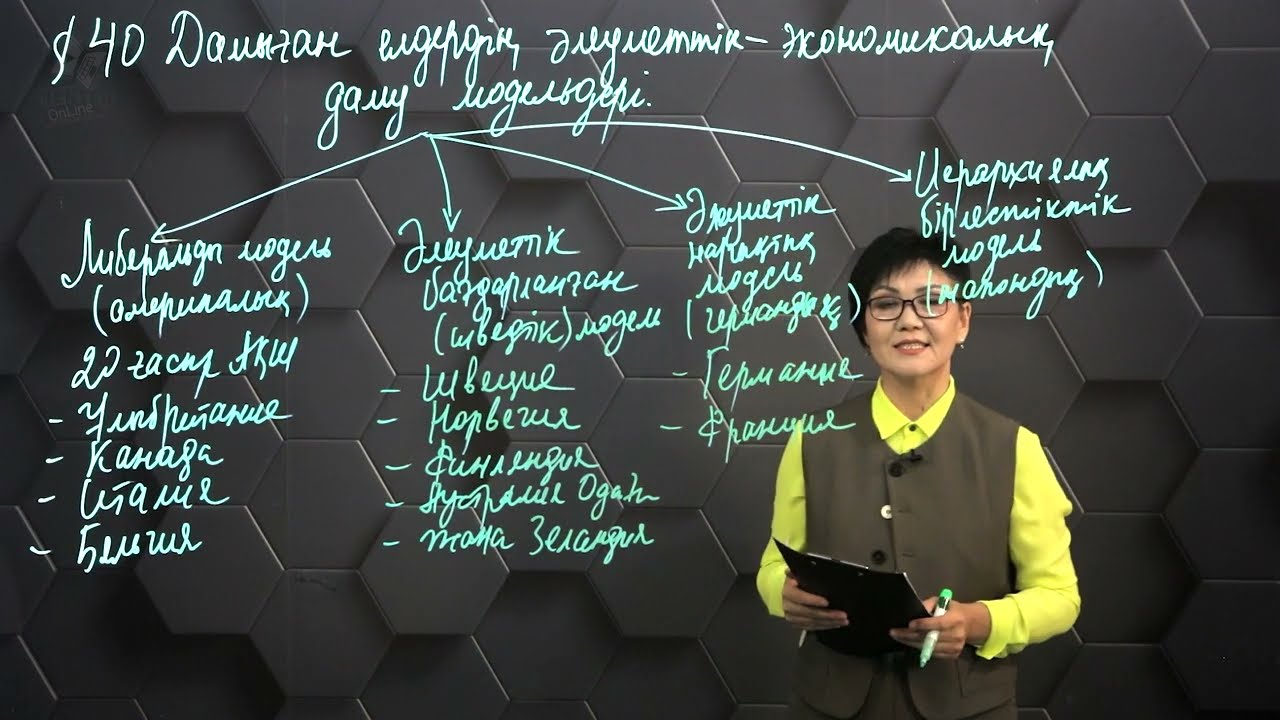 § 40 Дамыған елдердің әлеуметтік-экономикалық
даму модельдері.
OnLine
Либеральды модель
(америкалық)
20 ғасыр АҚШ
- Ұлыбритания
- Канада
- Италия
- Бельгия
Әлеуметтік
бағдарланған
(шведтік) модель
- Швеция
- Норвегия
- Финляндия
- Австралия Одағы
- Жаңа Зеландия
Әлеуметтік
нарықтық
модель
(германдық)
- Германия
- Франция
Иерархиялық
бірлестіктік
модель
(жапондық)